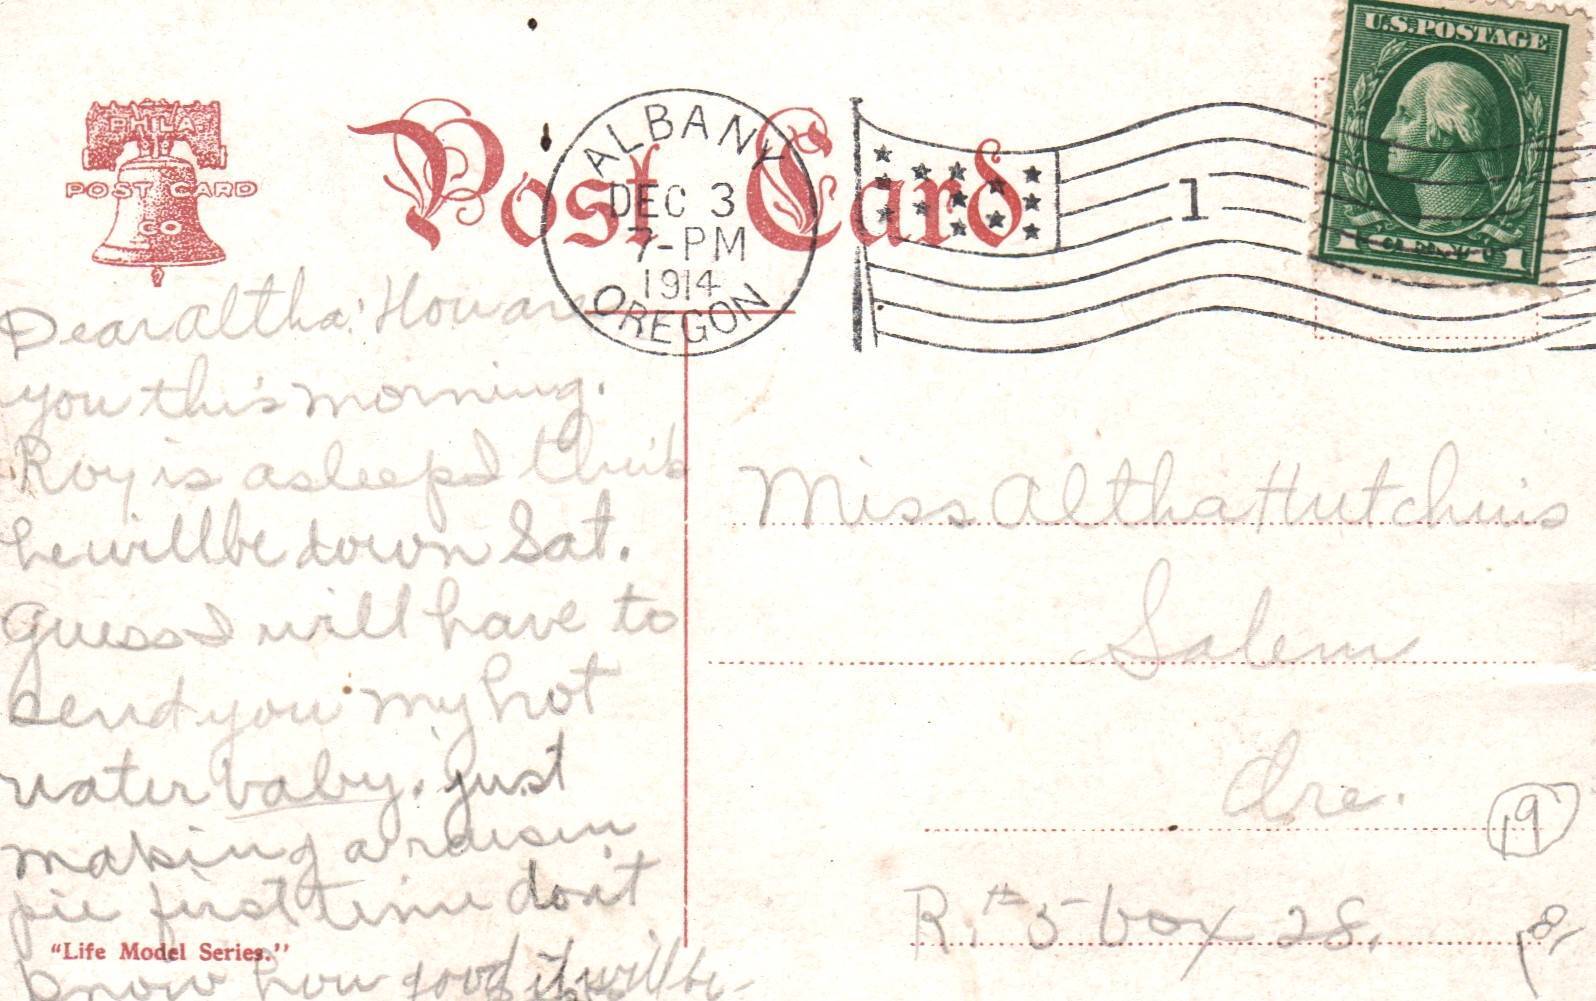 PHILA
POST CARD
CO
Post Card
ALBANY
DEC 3
7-PM
1914
OREGON
1
U.S. POSTAGE
1 1
Dear Altha: How are
you this morning.
Roy is asleep I think
he will be down Sat.
Guess I will have to
send you my hot
water baby. Just
making a raisin
pie first time don't
know how good it will be-
"Life Model Series."
Miss Altha Hutchins
Salem
Ore.
R. # 5 box 28.
19